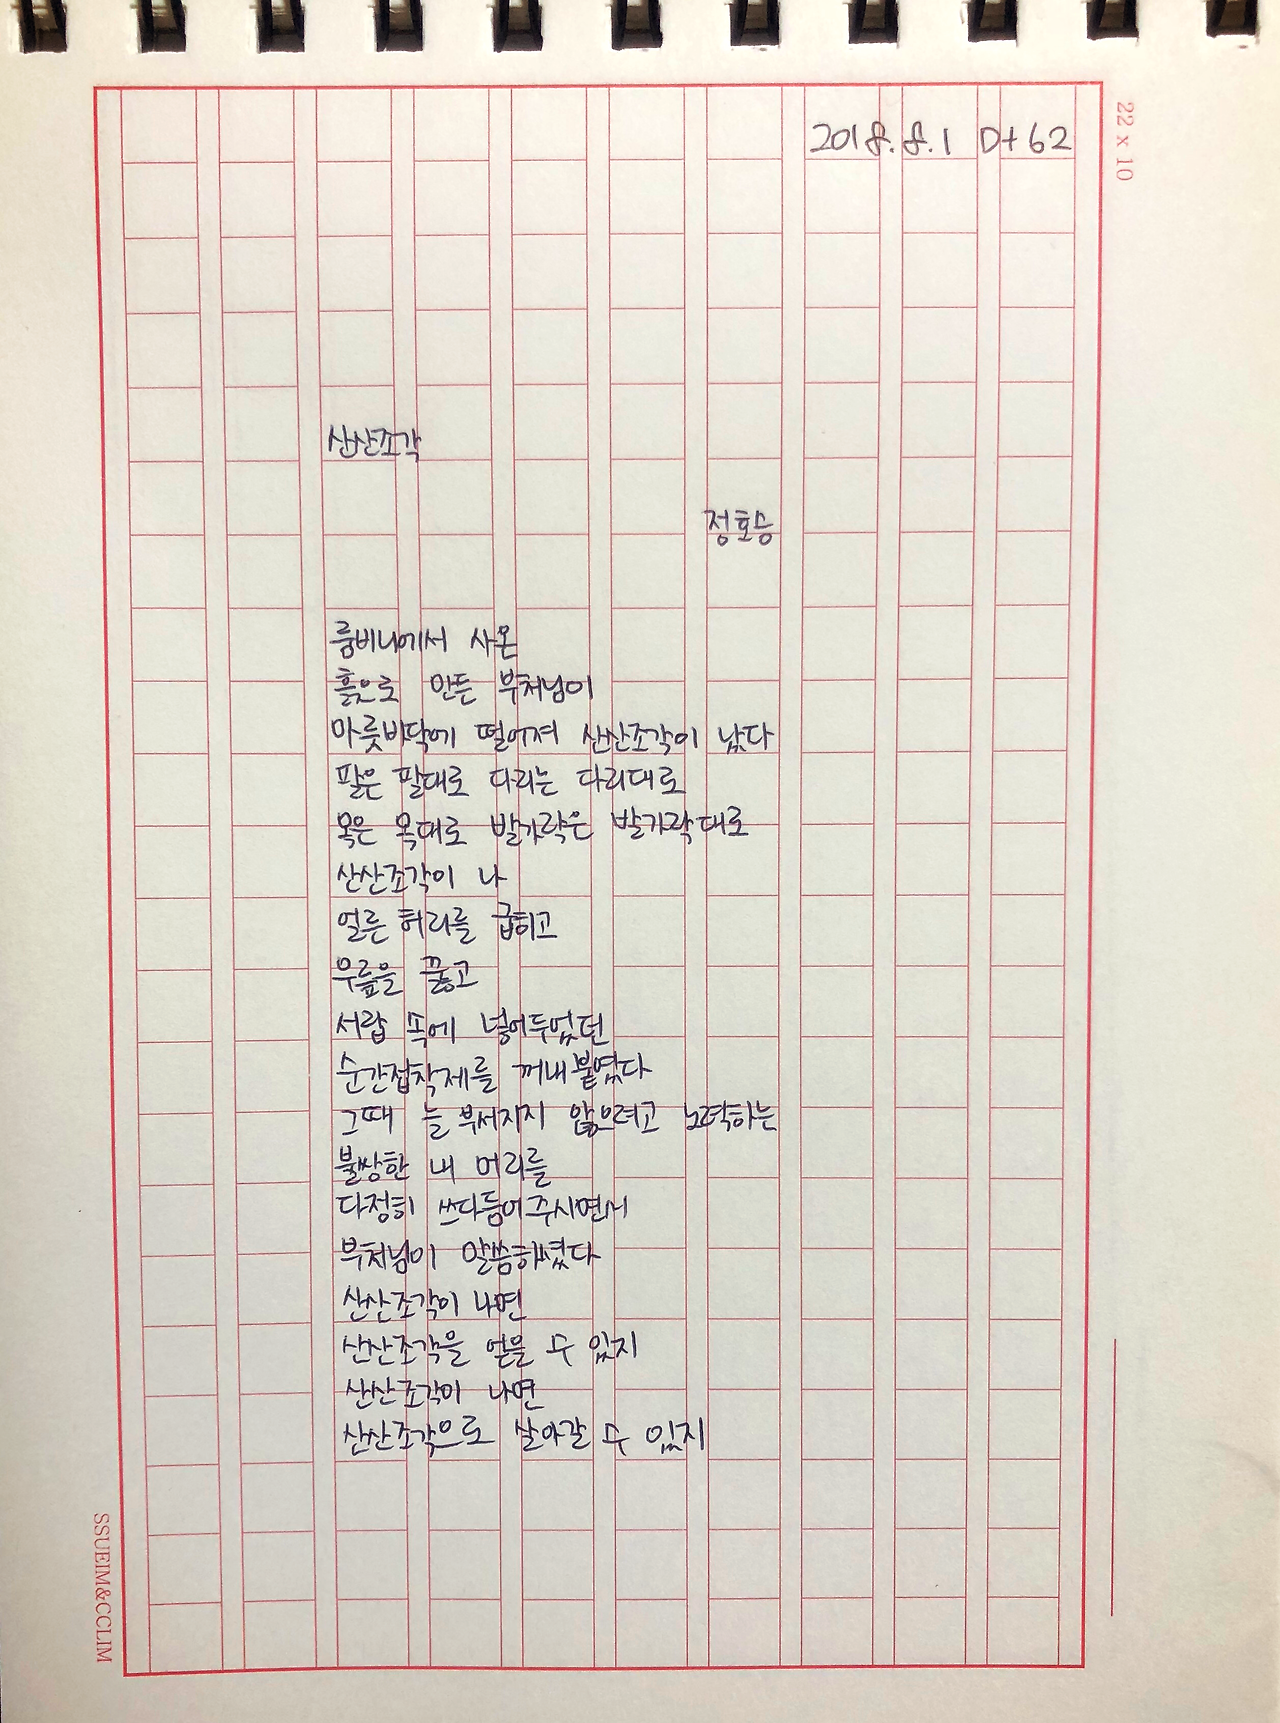 2018.8.1 D+62
22 x 10
산산조각
정호승
룸비니에서 사온
흙으로 만든 부처님이
마룻바닥에 떨어져 산산조각이 났다
팔은 팔대로 다리는 다리대로
목은 목대로 발가락은 발가락대로
산산조각이 나
얼른 허리를 굽히고
무릎을 꿇고
서랍 속에 넣어두었던
순간접착제를 꺼내 붙였다
그때 늘 부서지지 않으려고 노력하는
불쌍한 내 머리를
다정히 쓰다듬어주시면서
부처님이 말씀하셨다
산산조각이 나면
산산조각을 얻을 수 있지
산산조각이 나면
산산조각으로 살아갈 수 있지
SSUEIM&CCLIM